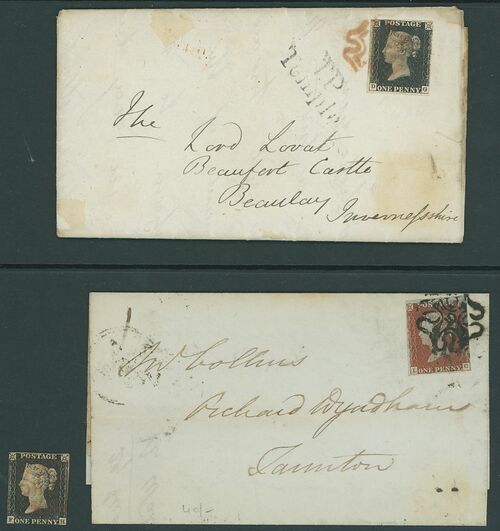 POSTAGE
ONE PENNY
T.P
Temple
The
Lord Lovat
Beaufort Castle
Beaulay
Invernessshire
ONE PENNY
Mr Collins
Richard Wyndham
Taunton
40/-
POSTAGE
ONE PENNY